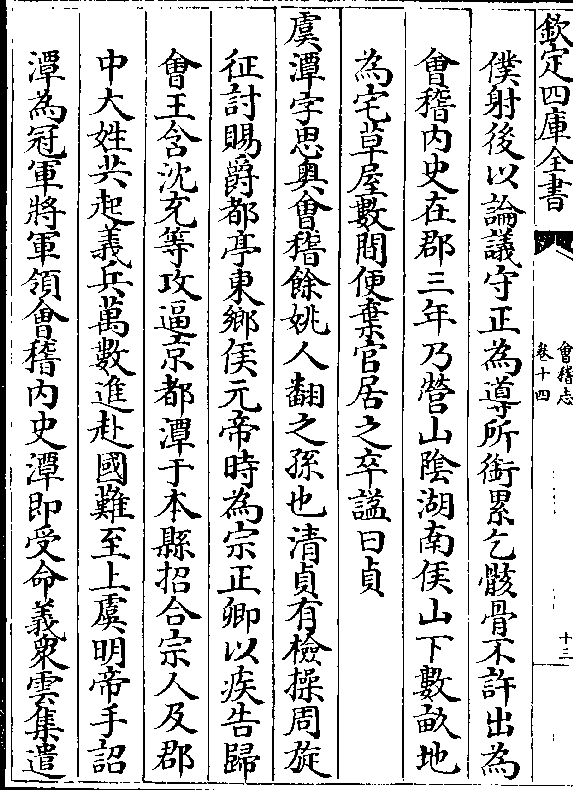 欽定四庫全書
會稽志
卷十四
十三
僕射後以論議守正為導所銜累乞骸骨不許出為
會稽内史在郡三年乃營山隂湖南侯山下數畝地
為宅草屋數間便棄官居之卒諡曰貞
虞潭字思奥會稽餘姚人翻之孫也清貞有檢操周旋
征討賜爵都亭東鄉侯元帝時為宗正卿以疾告歸
會王含沈充等攻逼京都潭于本縣招合宗人及郡
中大姓共起義兵萬數進赴國難至上虞明帝手詔
潭為冠軍將軍領會稽内史潭即受命義衆雲集遣